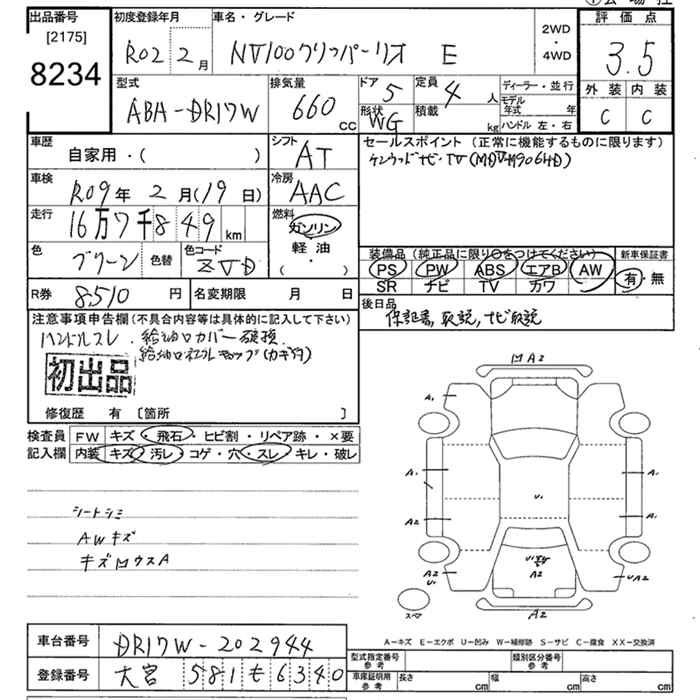 出品番号 初度登録年月 車名・グレード 2WD 評価点
[2175] R02 2月 NV100クリッパーリオ E ・ 3.5
8234 4WD
型式 排気量 ドア 定員 ディーラー・並行 外装 内装
ABA-DR17W 660 5 4人 モデル年式 年 C C
cc 形状 WG 積載 kg ハンドル 左・右
車歴 シフト セールスポイント(正常に機能するものに限ります)
自家用・( ) AT ケンウッドナビ・TV
車検 冷房
R09年 2月(19日) AAC
走行 燃料
16万7千849km ガソリン
色 色替 色コード 軽油 装備品(純正品に限り○をつけてください) 新車保証書
グリーン ZVD ( ・ ) PS PW ABS エアB AW 有・無
SR ナビ TV カワ
R券 8,510円 名変期限 月 日 後日品
保証書,取説,ナビ取説
注意事項申告欄(不具合内容等は具体的に記入して下さい)
ハンドルスレ・給油口カバー破損
初出品
修復歴 有 [箇所 ]
検査員 FW キズ・飛石・ヒビ割・リペア跡・×要
記入欄 内装 キズ・汚レ・コゲ・穴・スレ・キレ・破レ
MA2
A1
A1 A1
U1
A2 A1
A2 A2 UA2
スペア A2
シートシミ
AWキズ
A-キズ E-エクボ U-凹み W-補修跡 S-サビ C-腐食 XX-交換済
車台番号 DR17W-202944
型式指定番号 参考 類別区分番号 参考
登録番号 大宮 581 も 6340
車庫証明用 参考 長さ cm 幅 cm 高さ cm